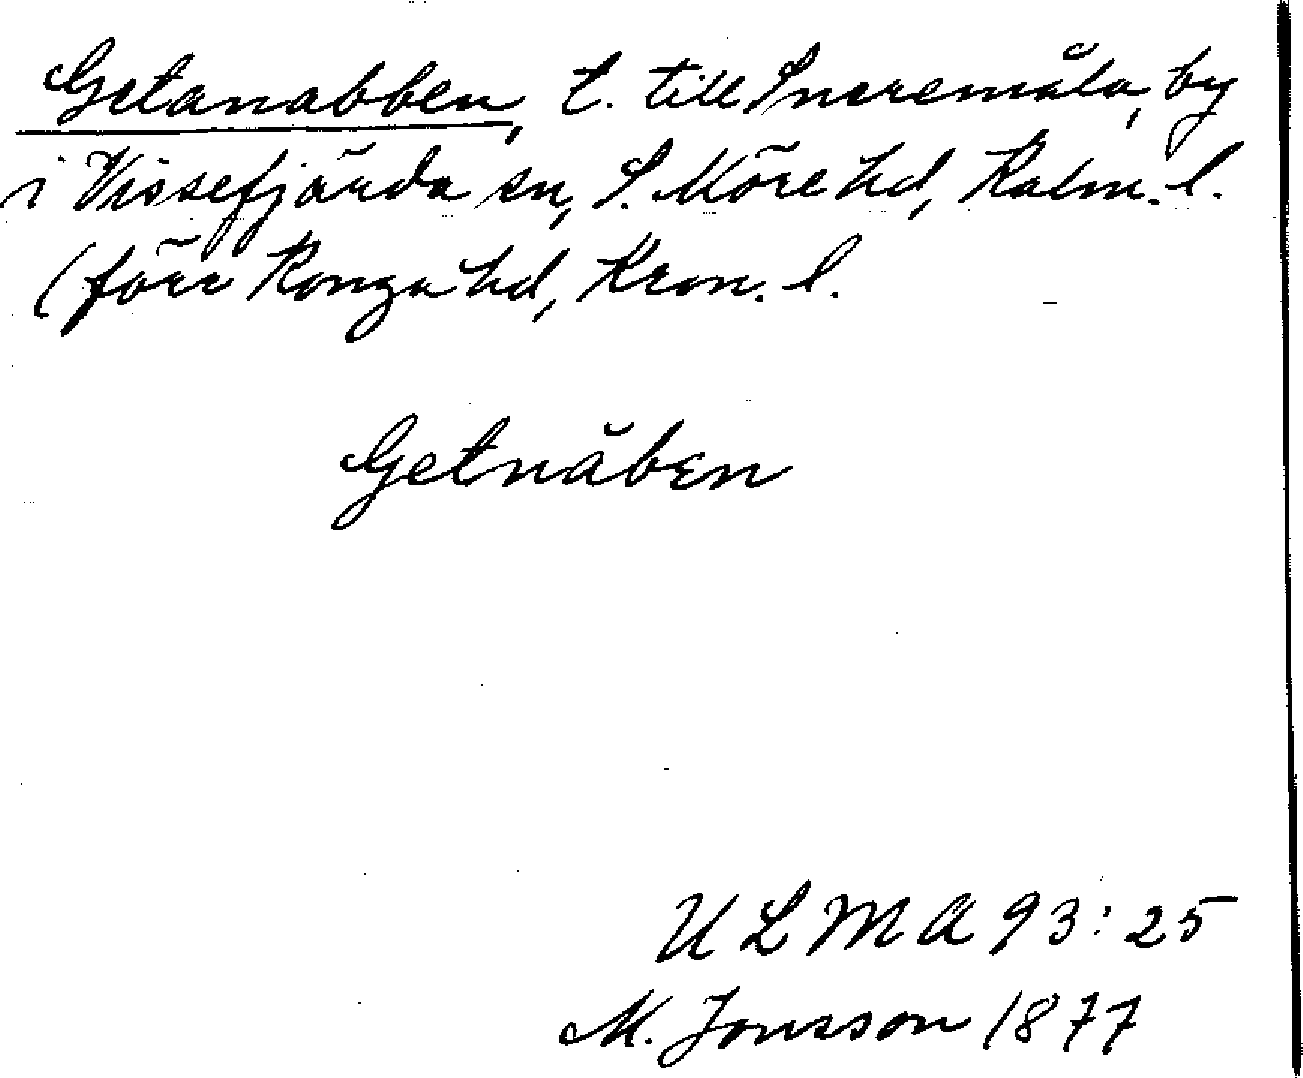 Getanabben, t. till Snaremåla, by
i Vissefjärda sn, S. Möre hd, Kalm. l.
(förr Konga hd, Kron. l.
Getnåben
ULMA 93:25
M. Jonsson 1877